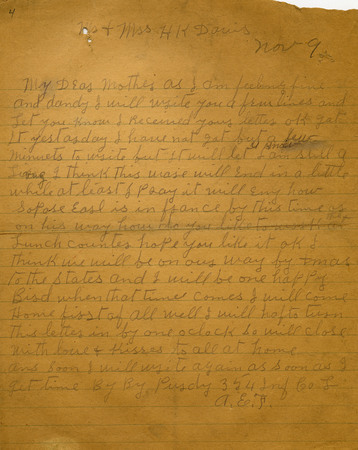 4
Mr & Mrs H K Davis
Nov 9
My Dear Mother as I am feeling fine
and dandy I will write you a few lines and
let you know I received your letter ok got
it yestaday I have not got but a few
minuets to write but it will let
I think this ware will end in a little
while at least I pray it will eny how
Sopose Earl is in france by this time or
on his way how do you like to
Lunch counter hope you like it ok I
think we will be on our way by Xmas
to the states and I will be one happy
Bird when that time comes I will come
Home first of all well I will hafto turn
this letter in by one oclock so will close
with love & kisses to all at home
ans soon I will write again as soon as I
get time By By. Purdy 354 Inf Co L
A.E.F.